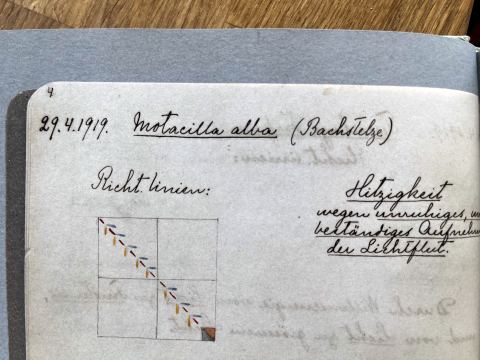 4
29.4.1919. Motacilla alba (Bachstelze)
Richtlinien:
Hitzigkeit
wegen unruhiges,
beständiges Aufnehm
der Lichtflut.